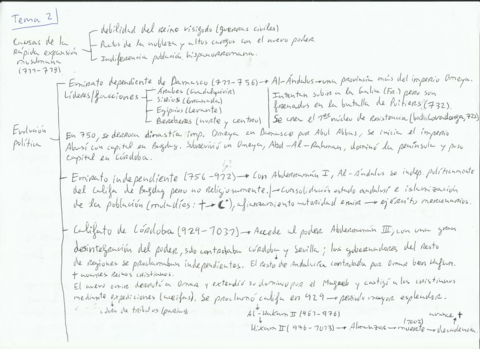 Tema 2
Causas de la rápida expansión musulmana (711-718)
debilidad del Reino visigodo (guerras civiles)
Pactos de la nobleza y altos cargos con el nuevo poder
Indiferencia población hispanorromana.
Evolución política
Emirato dependiente de Damasco (711-756) → Al-Ándalus → una provincia más del imperio Omeya.
Líderes/facciones
Árabes (Guadalquivir)
Sirios (Granada)
Egipcios (Levante)
Bereberes (norte y centro)
Intentan subir a la Galia (Fr.) pero son frenados en la batalla de Poitiers (732).
Se crea el 1er núcleo de resistencia (bat. Covadonga, 722)
En 750, se derroca dinastía imp. Omeya en Damasco por Abul Abbas, se inicia el imperio
Abasí con capital en Bagdag. Sobrevivió un Omeya, Abd-Al-Rahman, dominó la península y puso
capital en Córdoba.
Emirato independiente (756-912) → Con Abderramán I, Al-Ándalus se indep. políticamente
del Califa de Bagdag pero no religiosamente. → consolidación estado andalusí e islamización
de la población (muladíes: + → ☪), afianzamiento autoridad emires → ejército mercenarios.
Califato de Córdoba (929-1031) → Accede al poder Abderramán III, con una gran
desintegración del poder, solo controlaba Córdoba y Sevilla; los gobernadores del resto
de regiones se proclamaban independientes. El resto de Andalucía controlada por Omar ben Hafsun.
+ nuevos reinos cristianos.
El nuevo emir derrotó a Omar y extendió su dominio por el Magreb y castigó a los cristianos
mediante expediciones (aceifas). Se proclamó califa en 929 → periodo mayor esplendor.
cobro de tributos (parias)
Al-Hakam II (961-976)
Hixam II (976-1013) → Almanzor → muerte → decadencia
(1002)